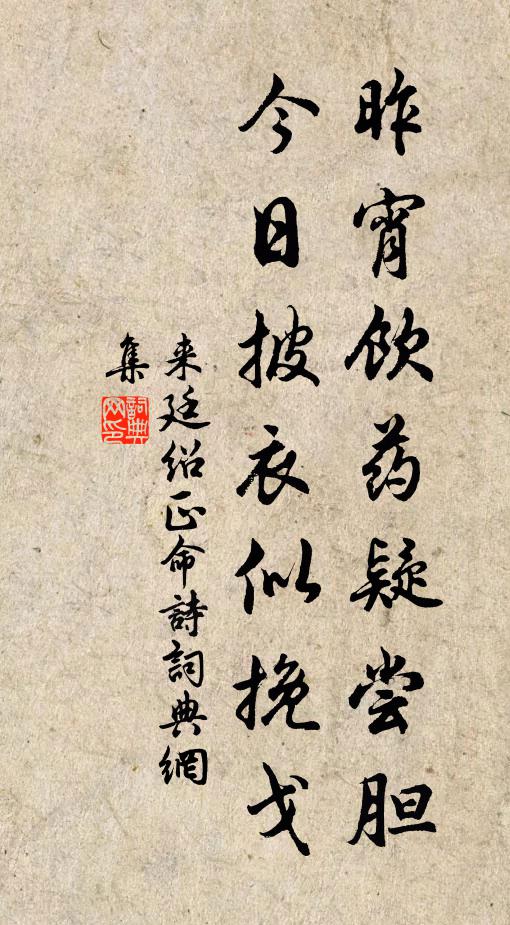 昨宵饮药疑尝胆
今日披衣似挽戈
来廷绍正命詩詞典網
集
詞典网印